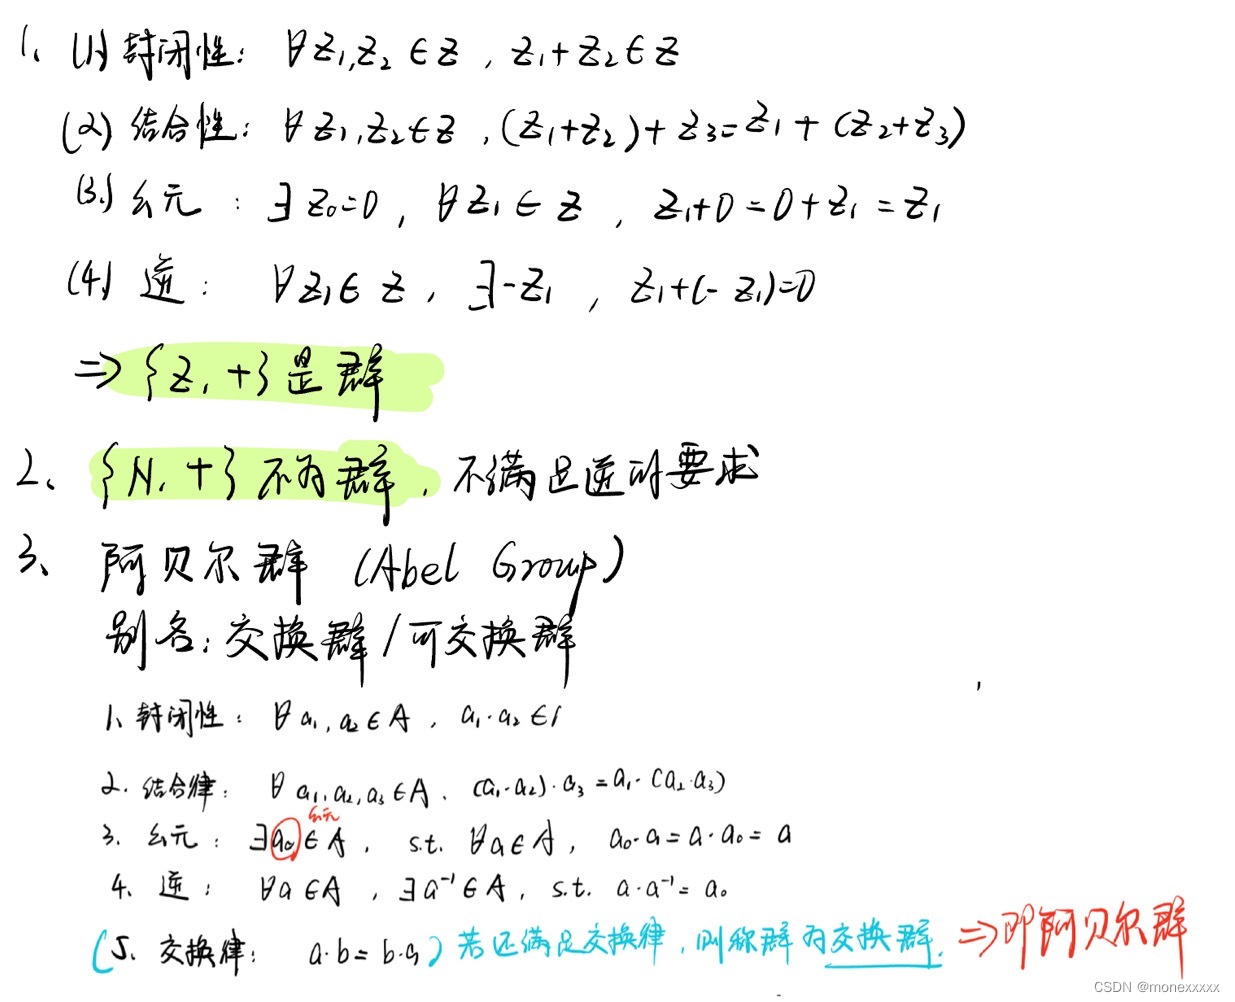 1、(1) 封闭性: ∀Z₁,Z₂ ∈ Z , Z₁+Z₂ ∈ Z
(2) 结合性: ∀Z₁,Z₂∈Z , (Z₁+Z₂)+Z₃=Z₁+(Z₂+Z₃)
(3) 幺元 : ∃Z₀=0 , ∀Z₁∈Z , Z₁+0=0+Z₁=Z₁
(4) 逆 : ∀Z₁∈Z , ∃-Z₁ , Z₁+(-Z₁)=0
⇒{Z,+}是群
2、{N,+}不为群,不满足逆的要求
3、阿贝尔群 (Abel Group)
别名:交换群/可交换群
1、封闭性: ∀a₁,a₂∈A , a₁·a₂∈
2.结合律: ∀a₁,a₂,a₃∈A . (a₁·a₂)·a₃=a₁·(a₂·a₃)
幺元
3.幺元 : ∃a₀∈A , s.t. ∀a∈A , a₀·a=a·a₀=a
4.逆 : ∀a∈A , ∃a⁻¹∈A , s.t. a·a⁻¹=a₀
(5.交换律: a·b=b·a)若还满足交换律,则称群为交换群.⇒即阿贝尔群
CSDN @monexxxxx